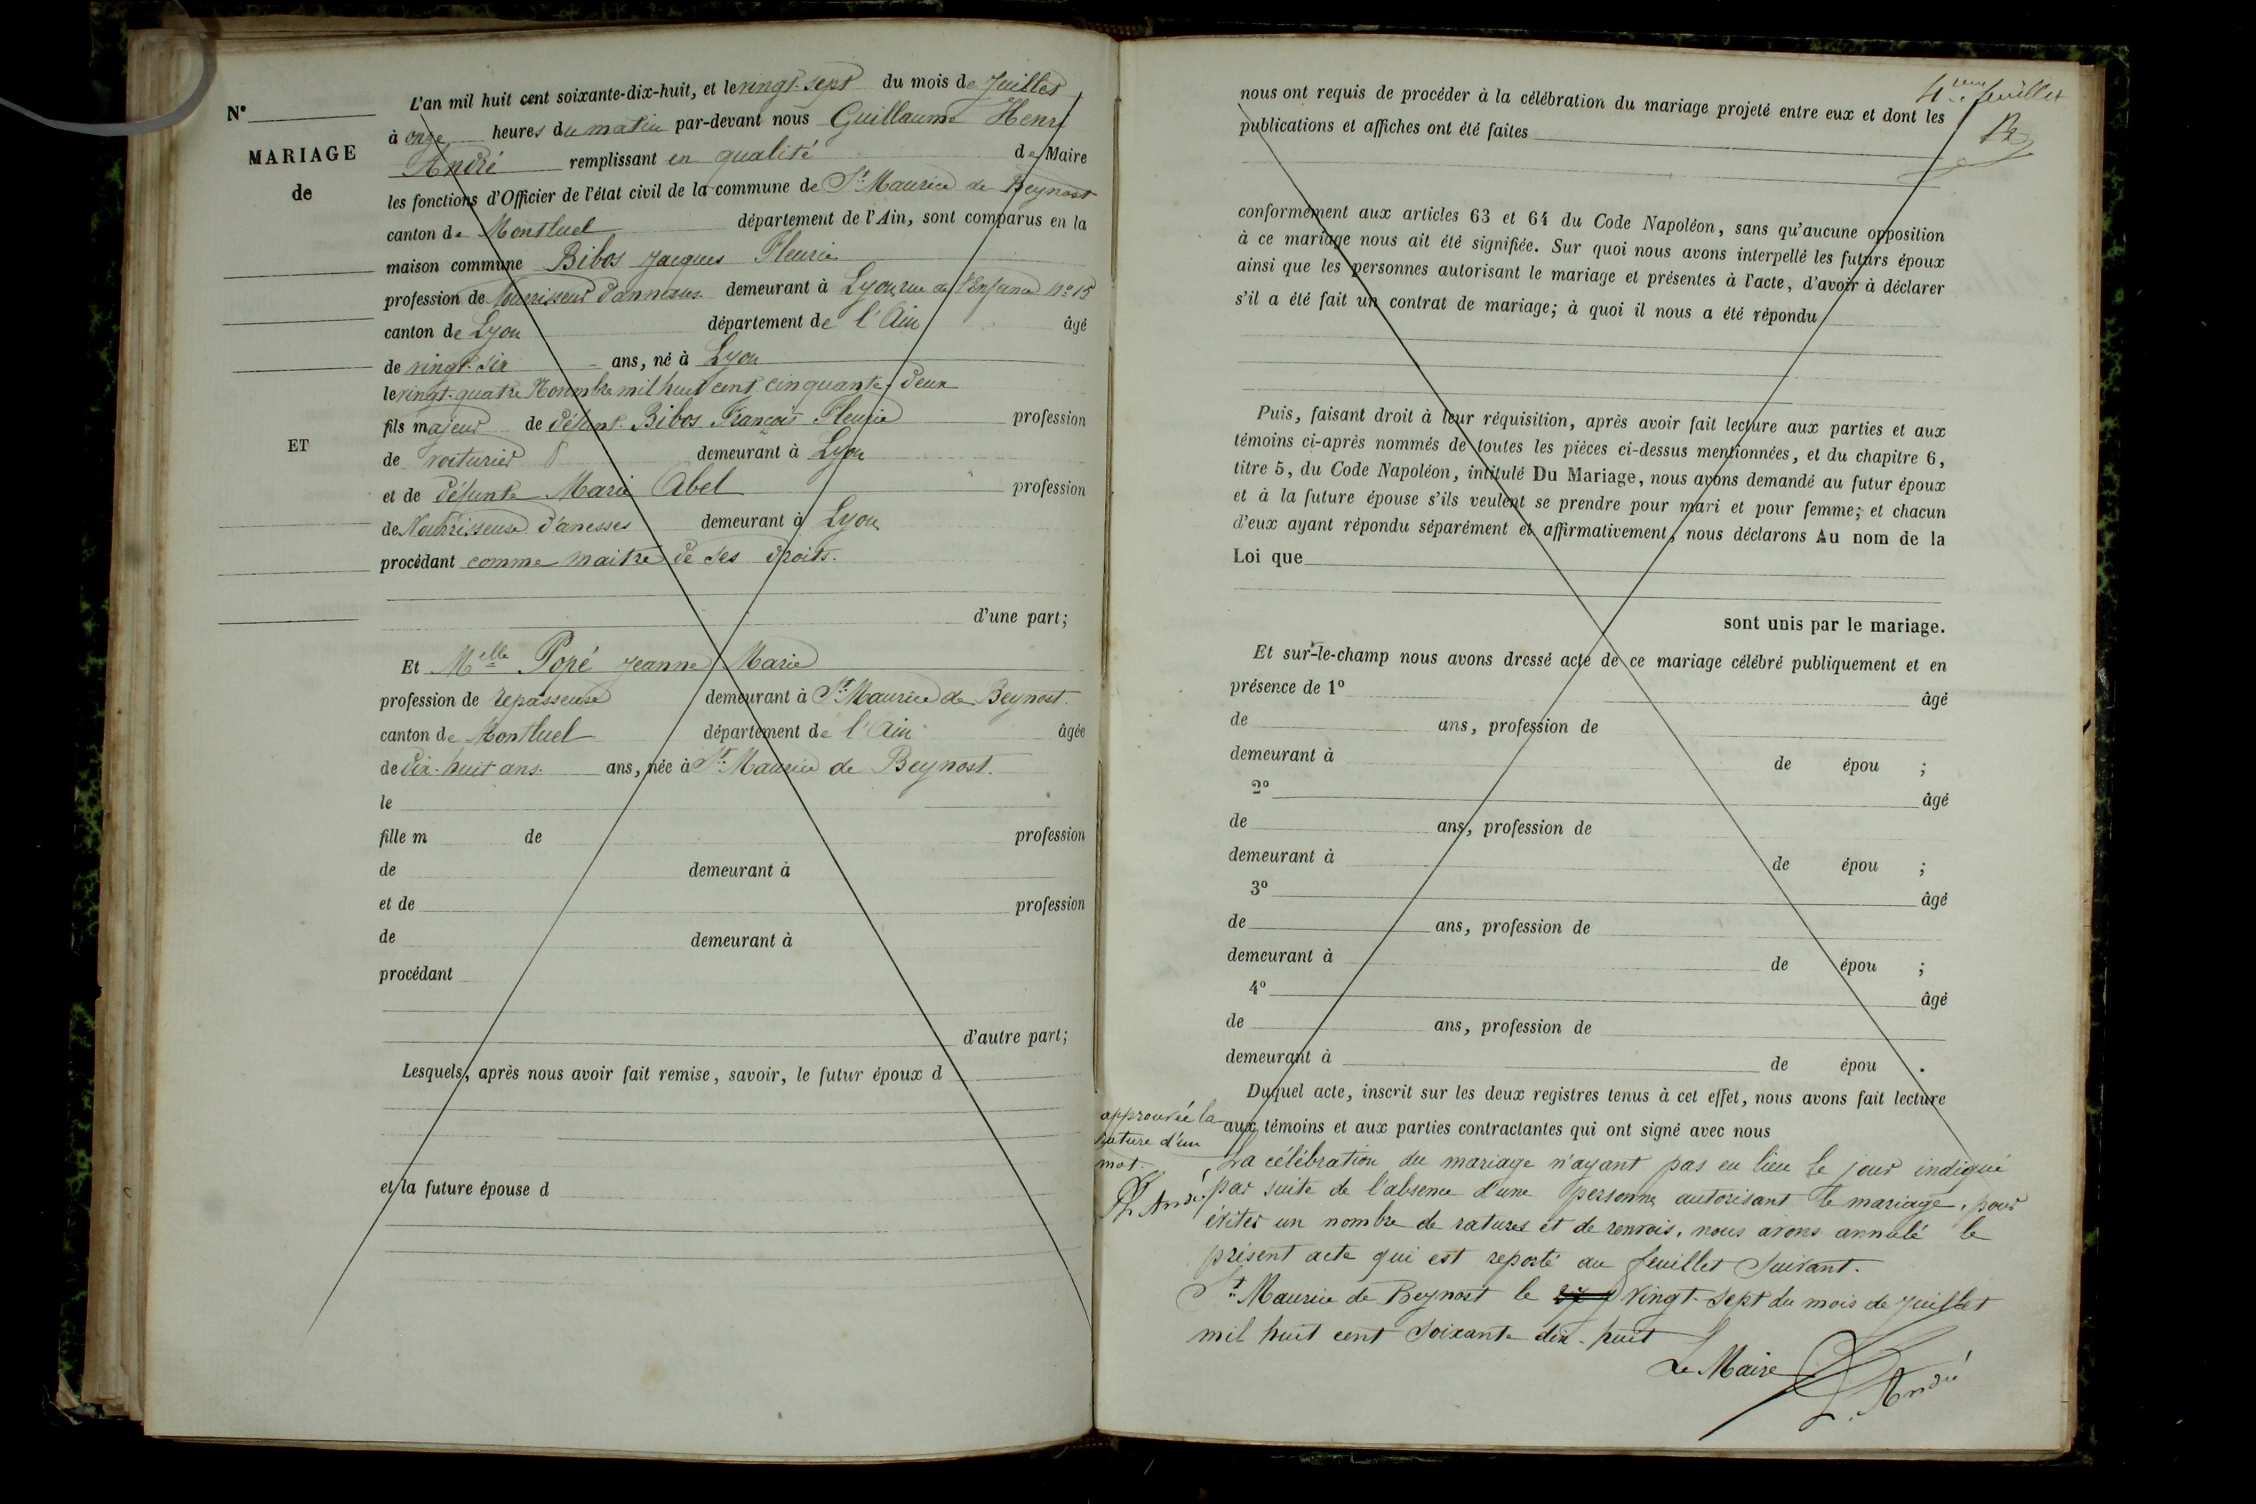 N°
MARIAGE
de
ET
L'an mil huit cent soixante-dix-huit, et le vingt-sept du mois de Juillet
à onze heures du matin par-devant nous Guillaume Henri
André remplissant en qualité de Maire
les fonctions d'Officier de l'état civil de la commune de St Maurice de Beynost
canton de Montluel département de l'Ain, sont comparus en la
maison commune Bibos Jacques Fleurie
profession de Nourrisseur d'annesses demeurant à Lyon, rue de l'Enfance n° 15
canton de Lyon département de l'Ain âgé
de vingt-six ans, né à Lyon
le vingt-quatre Novembre mil huit cent cinquante-deux
fils majeur de défunt Bibos François Fleurie profession
de voiturier demeurant à Lyon
et de défunte Marie Abel profession
de Nourrisseuse d'anesses demeurant à Lyon
procédant comme maitre de ses droits.
d'une part;
Et Melle Popé Jeanne Marie
profession de repasseuse demeurant à St Maurice de Beynost.
canton de Montluel département de l'Ain âgée
de dix-huit ans. ans, née à St Maurice de Beynost.
le
fille m de profession
de demeurant à
et de profession
de demeurant à
procédant
d'autre part;
Lesquels, après nous avoir fait remise, savoir, le futur époux d
et la future épouse d
4eme feuillet
nous ont requis de procéder à la célébration du mariage projeté entre eux et dont les
publications et affiches ont été faites
conformément aux articles 63 et 64 du Code Napoléon, sans qu'aucune opposition
à ce mariage nous ait été signifiée. Sur quoi nous avons interpellé les futurs époux
ainsi que les personnes autorisant le mariage et présentes à l'acte, d'avoir à déclarer
s'il a été fait un contrat de mariage; à quoi il nous a été répondu
Puis, faisant droit à leur réquisition, après avoir fait lecture aux parties et aux
témoins ci-après nommés de toutes les pièces ci-dessus mentionnées, et du chapitre 6,
titre 5, du Code Napoléon, intitulé Du Mariage, nous avons demandé au futur époux
et à la future épouse s'ils veulent se prendre pour mari et pour femme; et chacun
d'eux ayant répondu séparément et affirmativement, nous déclarons Au nom de la
Loi que
sont unis par le mariage.
Et sur-le-champ nous avons dressé acte de ce mariage célébré publiquement et en
présence de 1° âgé
de ans, profession de
demeurant à de épou ;
2° âgé
de ans, profession de
demeurant à de épou ;
3° âgé
de ans, profession de
demeurant à de épou ;
4° âgé
de ans, profession de
demeurant à de épou .
Duquel acte, inscrit sur les deux registres tenus à cet effet, nous avons fait lecture
aux témoins et aux parties contractantes qui ont signé avec nous
approuvée la
rature d'un
mot.
André
La célébration du mariage n'ayant pas eu lieu le jour indiqué
par suite de l'absence d'une personne autorisant le mariage, pour
éviter un nombre de ratures et de renvois, nous avons annulé le
présent acte qui est reporté au feuillet suivant.
St Maurice de Beynost le vingt-sept du mois de Juillet
mil huit cent soixante dix-huit
Le Maire
André